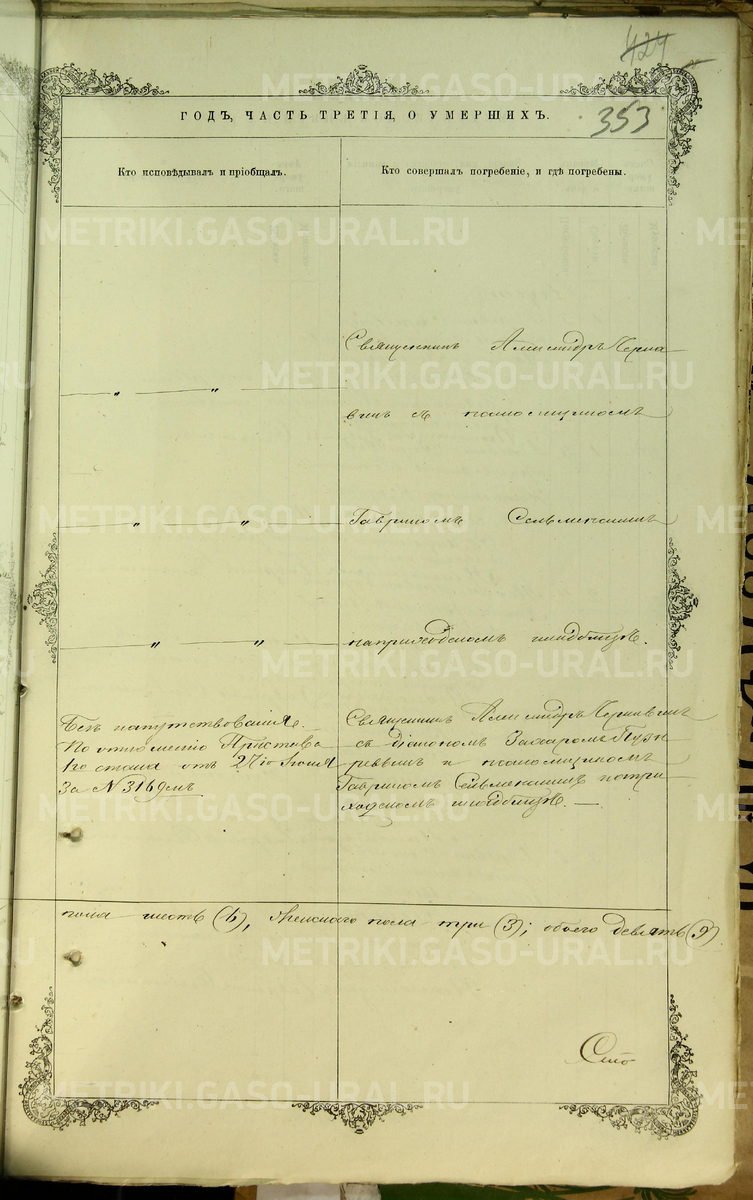 424
353
ГОДЪ, ЧАСТЬ ТРЕТІЯ, О УМЕРШИХЪ.
Кто исповѣдывалъ и пріобщалъ.
Кто совершалъ погребеніе, и гдѣ погребены.
Священникъ Александръ Черна
винъ съ псаломщикомъ
Гавриломъ
наприходскомъ кладбищѣ.
Безъ напутствованія.
По отношенію Пристава
1го стана отъ 27го Іюля
За № 3169мъ
Священникъ Александръ Чернавинъ
съ Діакономъ Захаромъ
и псаломщикомъ
Гавриломъ напри
ходскомъ кладбищѣ. —
пола шесть (6), Женскаго пола три (3); обоего девять (9)
METRIKI.GASO-URAL.RU